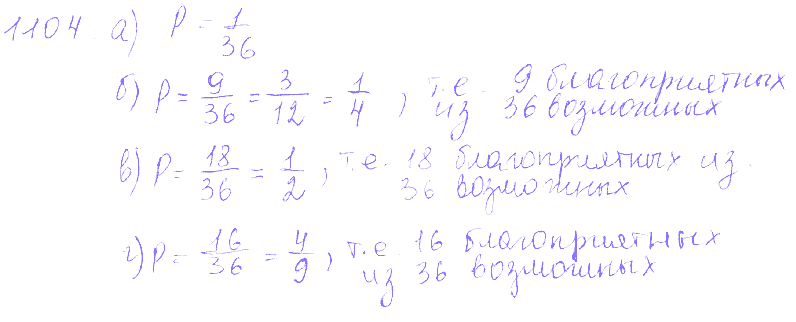 1104 а) P = 1/36
б) P = 9/36 = 3/12 = 1/4, т.е. 9 благоприятных
из 36 возможных
в) P = 18/36 = 1/2, т.е. 18 благоприятных из
36 возможных
г) P = 16/36 = 4/9, т.е. 16 благоприятных
из 36 возможных